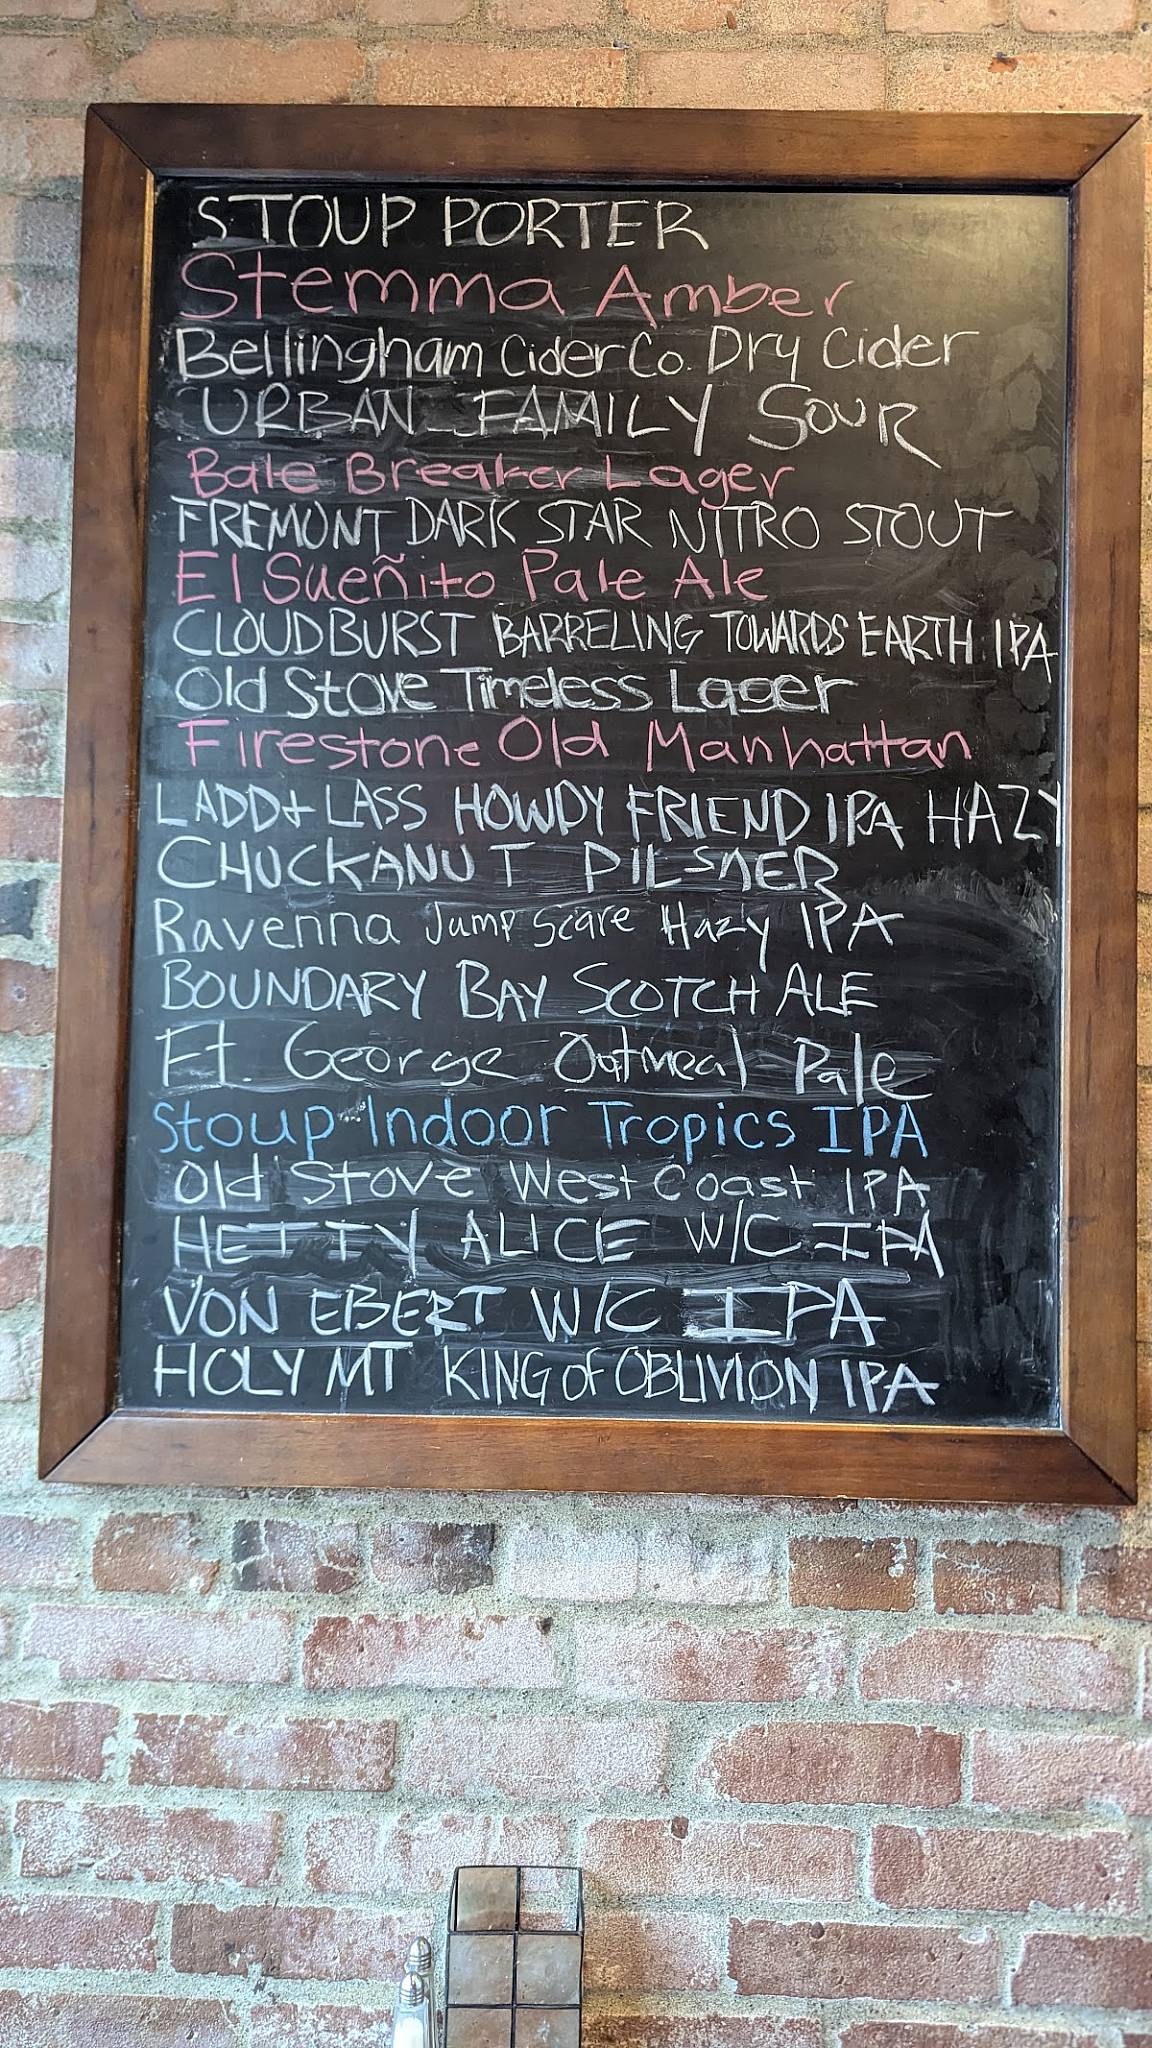 STOUP PORTER
Stemma Amber
Bellingham Cider Co. Dry Cider
URBAN FAMILY SOUR
Bale Breaker Lager
FREMONT DARK STAR NITRO STOUT
El Sueñito Pale Ale
CLOUDBURST BARRELING TOWARDS EARTH IPA
Old Stove Timeless Lager
Firestone Old Manhattan
LADD+LASS HOWDY FRIEND IPA HAZY
CHUCKANUT PILSNER
Ravenna Jump Scare Hazy IPA
BOUNDARY BAY SCOTCH ALE
Ft. George Oatmeal Pale
Stoup Indoor Tropics IPA
Old Stove West Coast IPA
HETTY ALICE W/C IPA
VON EBERT W/C IPA
HOLY MT KING OF OBLIVION IPA